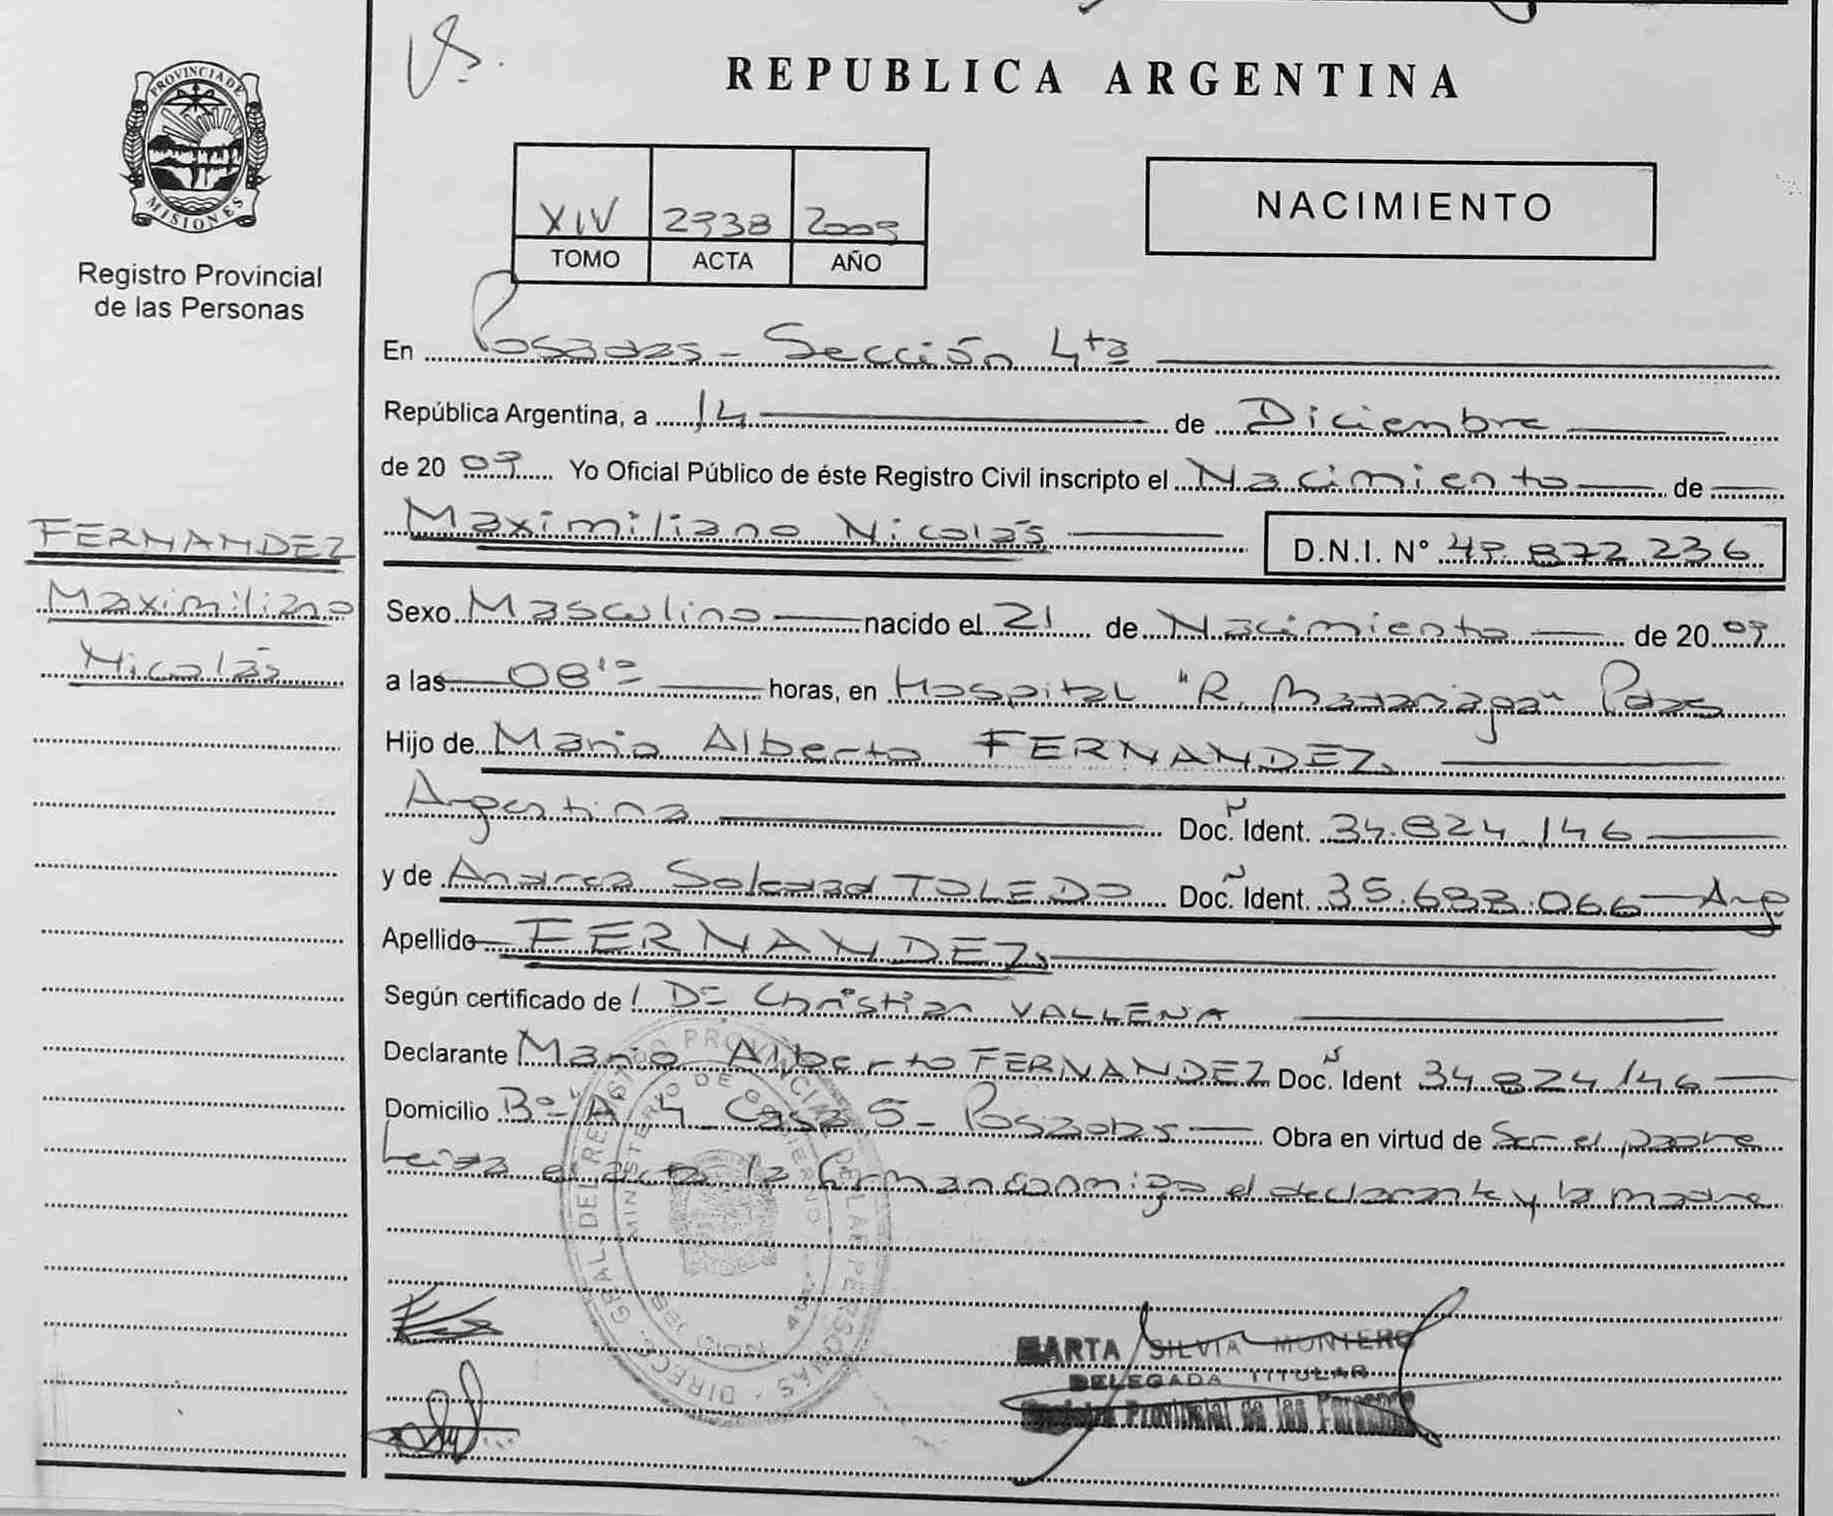 Vs.
PROVINCIA DE
MISIONES
Registro Provincial
de las Personas
REPUBLICA ARGENTINA
XIV 2938 2009
TOMO ACTA AÑO
NACIMIENTO
En Posadas - Sección 4ta
República Argentina, a 14 de Diciembre
de 20 09 Yo Oficial Público de éste Registro Civil inscripto el Nacimiento de
Maximiliano Nicolás D.N.I. N°
FERNANDEZ
Maximiliano
Nicolás
Sexo Masculino nacido el 21 de Nacimiento de 20 09
a las 08 horas, en Hospital "R. Madariaga" Pdas
Hijo de Mario Alberto FERNANDEZ.
Argentina Doc. Ident. 34.824.146
y de Andrea Soledad TOLEDO Doc. Ident. Arg
Apellido FERNANDEZ.
Según certificado de Christian VALLENA
Declarante Mario Alberto FERNANDEZ Doc. Ident 34.824.146
Domicilio Bº A 4 Casa 5 - Posadas Obra en virtud de Ser el padre
Leida el acta la firman conmigo el declarante y la madre
DIRECC. GRAL. DEL REGISTRO PROVINCIAL DE LAS PERSONAS
MINISTERIO DE GOBIERNO
MARTA SILVIA MONTERO
DELEGADA TITULAR
Registro Provincial de las Personas